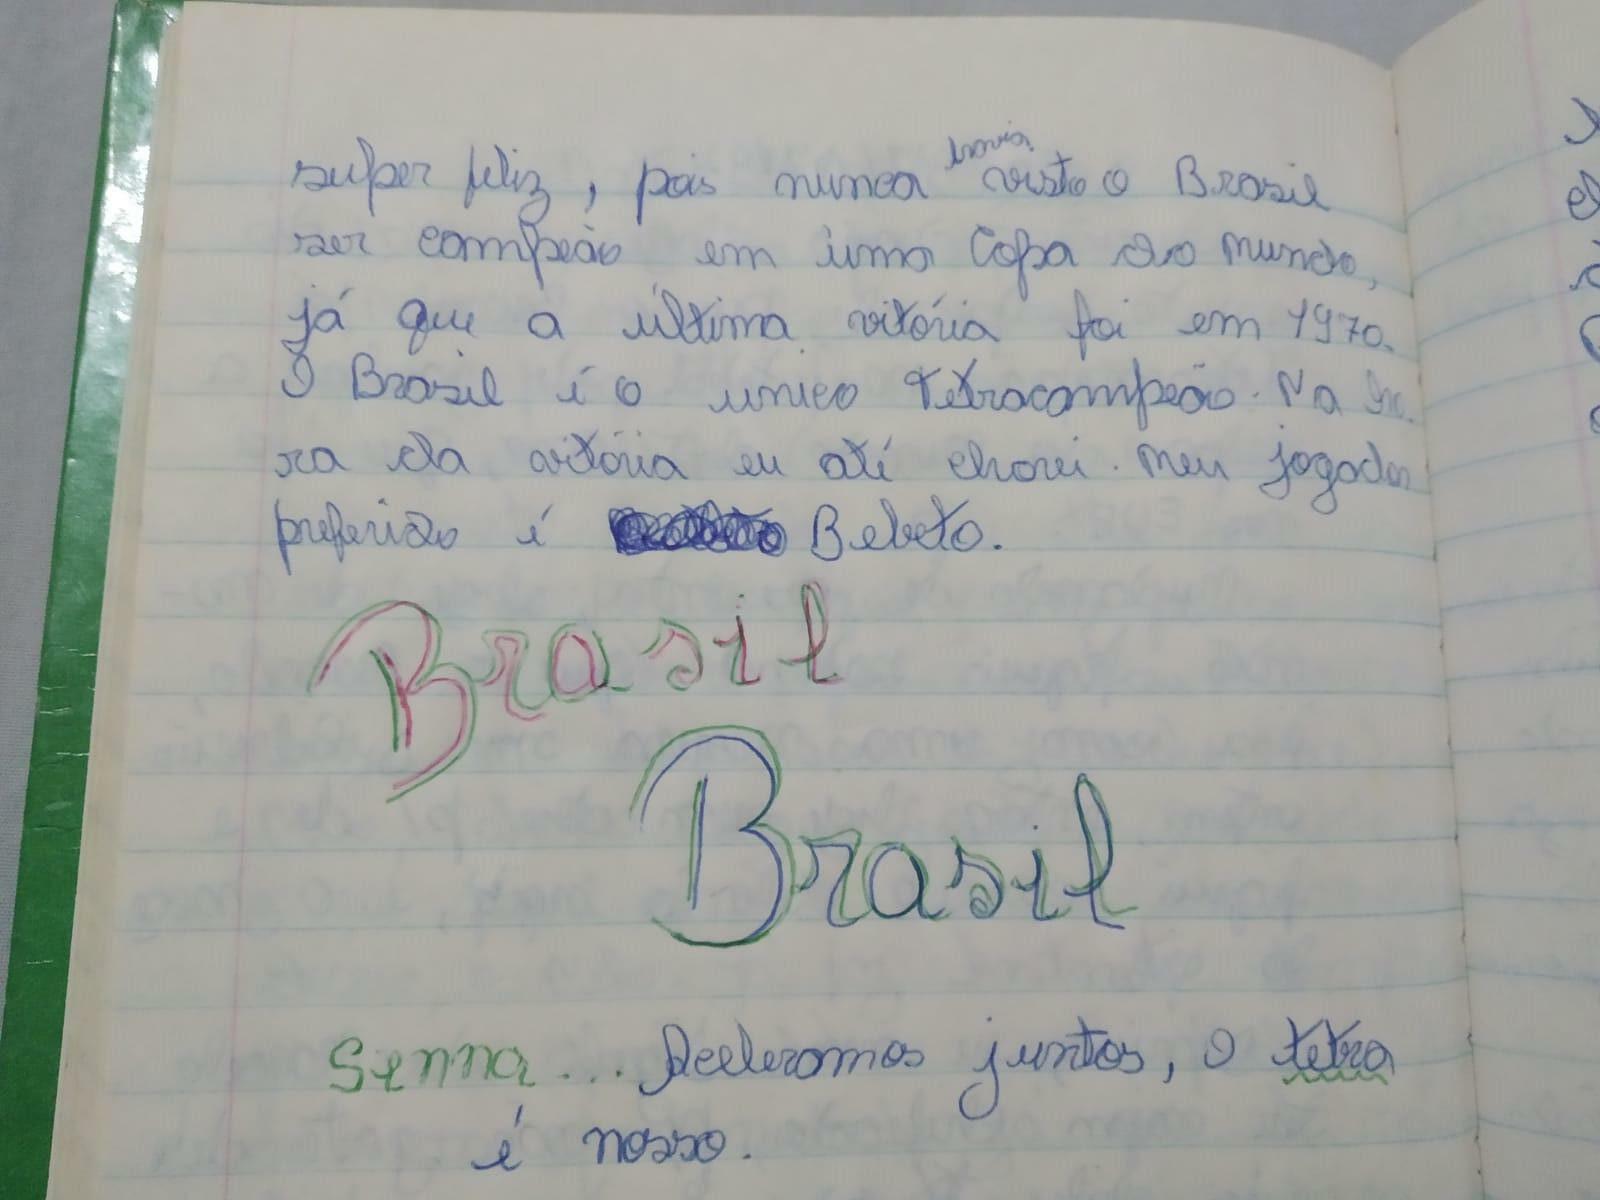 super feliz, pois nunca havia visto o Brasil
ser campeão em uma Copa do mundo,
já que a última vitória foi em 1970.
O Brasil é o unico tetracampeão. Na ho-
ra da vitória eu até chorei. Meu jogador
preferido é Bebeto.
Brasil
Brasil
Senna... Aceleramos juntos, o tetra
é nosso.